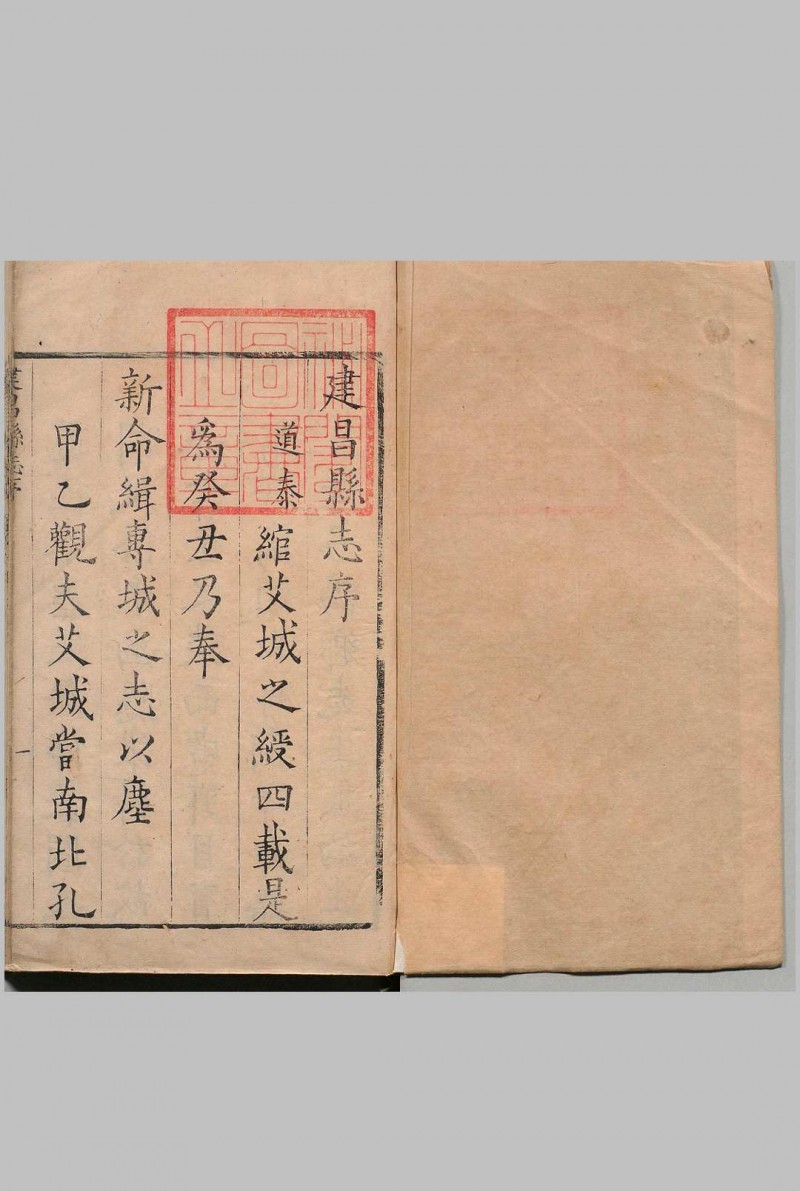 建昌縣志序
道泰綰艾城之綬四載是
爲癸丑乃奉
新命緝專城之志以塵
甲乙觀夫艾城當南北孔
昌縣志序
一